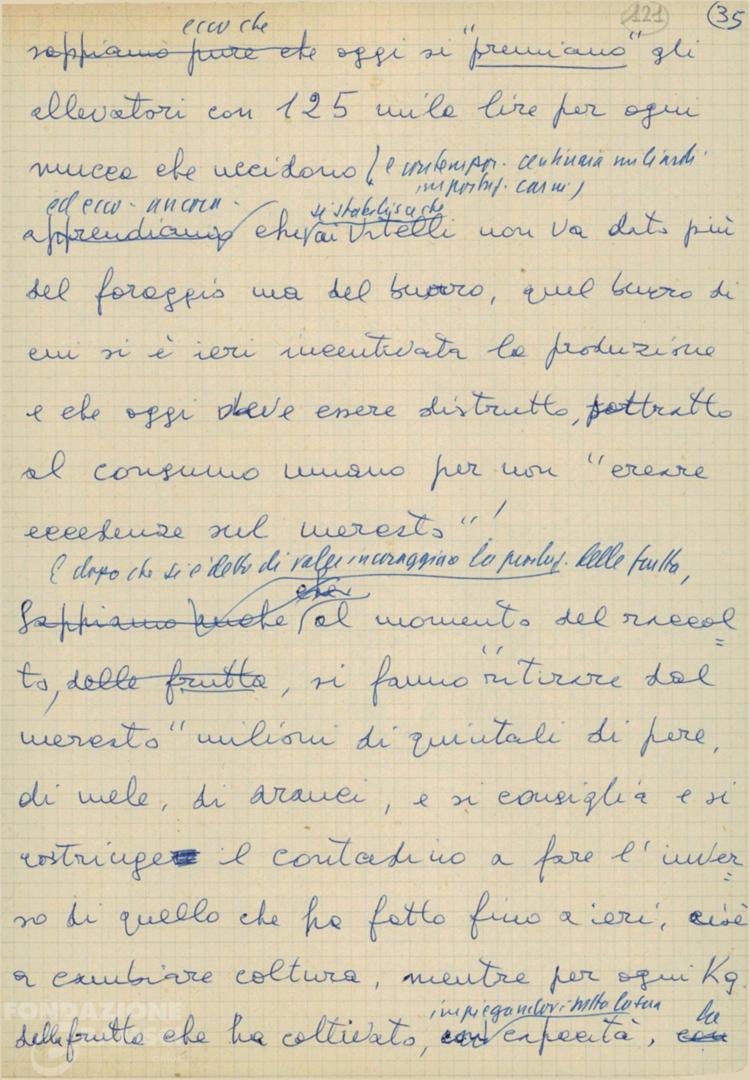 121 35
ecco che
sappiamo pure che oggi si "premiano" gli
allevatori con 125 mila lire per ogni
mucca che uccidono (e contempor. centinaia miliardi
importaz. carni)
ed ecco ancora
si stabilisce che
apprendiamo che ai vitelli non va dato più
del foraggio ma del burro, quel burro di
cui si è ieri incentivata la produzione
e che oggi deve essere distrutto, sottratto
al consumo umano per non "creare
eccedenze sul mercato"!
E dopo che si è detto di voler incoraggiare la produz. della frutta,
Sappiamo anche al momento del raccol=
to, della frutta, si fanno "ritirare dal
mercato" milioni di quintali di pere,
di mele, di aranci, e si consiglia e si
costringe il contadino a fare l'inver=
so di quello che ha fatto fino a ieri, cioè
a cambiare coltura, mentre per ogni Kg.
impiegandovi tutta la sua
ha
della frutta che ha coltivato, con capacità, con
FONDAZIONE